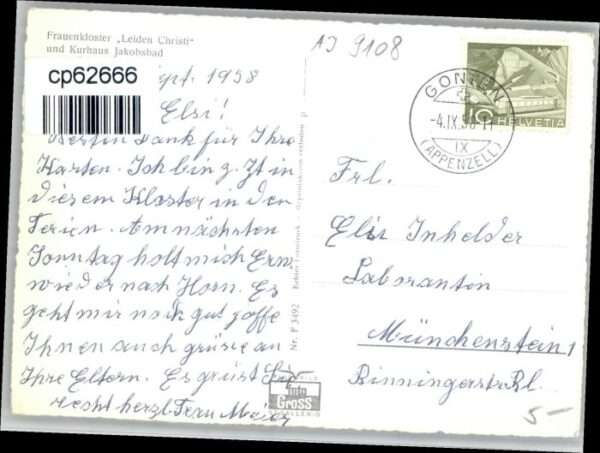 Frauenkloster „Leiden Christi“
und Kurhaus Jakobsbad
cp62666
ept. 1958
Elsi!
Dank für Ihre
Karten. Ich bin z. Zt in
diesem Kloster in den
Ferien. Am nächsten
Sonntag holt mich Erna
wieder nach Horn. Es
geht mir noch gut, hoffe
Ihnen auch grüsse an
Ihre Eltern. Es grüst Sie
recht herzl Frau Maier
Nr. P 3492
Foto
Gross
AJ 9108
GONTEN
-4.IX.58-17
IX
(APPENZELL)
HELVETIA
Frl.
Elsi Inhelder
Laborantin
Münchenstein 1
Binningerstr.
5-